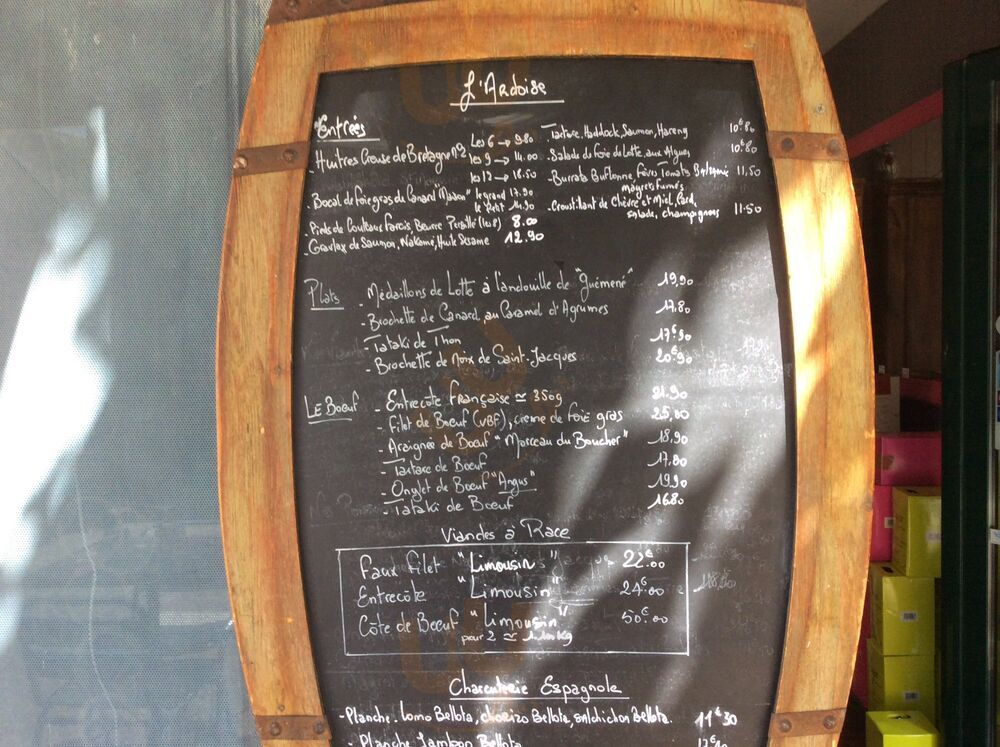 L'Ardoise
Entrées
- Huitres Creuse de Bretagne n°3 Les 6 → 9.80
les 9 → 14.00
les 12 → 18.50
- Bocal de foie gras de Canard "Maison" le grand 17.90
le Petit 14.90
- Pieds de Couteaux Farcis Beurre Persillé 8.00
- Gravlax de Saumon, Wakamé, Huile Sésame 12.90
- Tartare, Haddock, Saumon, Hareng 10€80
- Salade de Foie de Lotte, aux Algues 10€80
- Burrata Buflonne, Tomats 11,50
magrets fumés
- Croustillant de Chèvre et Miel, Lard,
salade, champignons 11.50
Plats - Médaillons de Lotte à l'andouille de "Guémené" 19,90
- Brochette de Canard, au Caramel d'Agrumes 17.80
- Tataki de Thon 17€90
- Brochette de Noix de Saint-Jacques 20€90
Le Bœuf - Entrecôte Française ≃ 350g 21.90
- Filet de Bœuf (VBF), crème de foie gras 25,00
- Araignée de Bœuf "Morceau du Boucher" 18,90
- Tartare de Bœuf 17,80
- Onglet de Bœuf "Angus" 19,90
- Tataki de Bœuf 16.80
Viandes à Race
Faux Filet "Limousin" 22€.00
Entrecôte "Limousin" 24€.00
Côte de Bœuf "Limousin" 50€.00
pour 2 ≃ 1.100kg
Charcuterie Espagnole
- Planche: Lomo Bellota, chorizo Bellota, salchichon Bellota. 11€30
- Planche Jambon Bellota